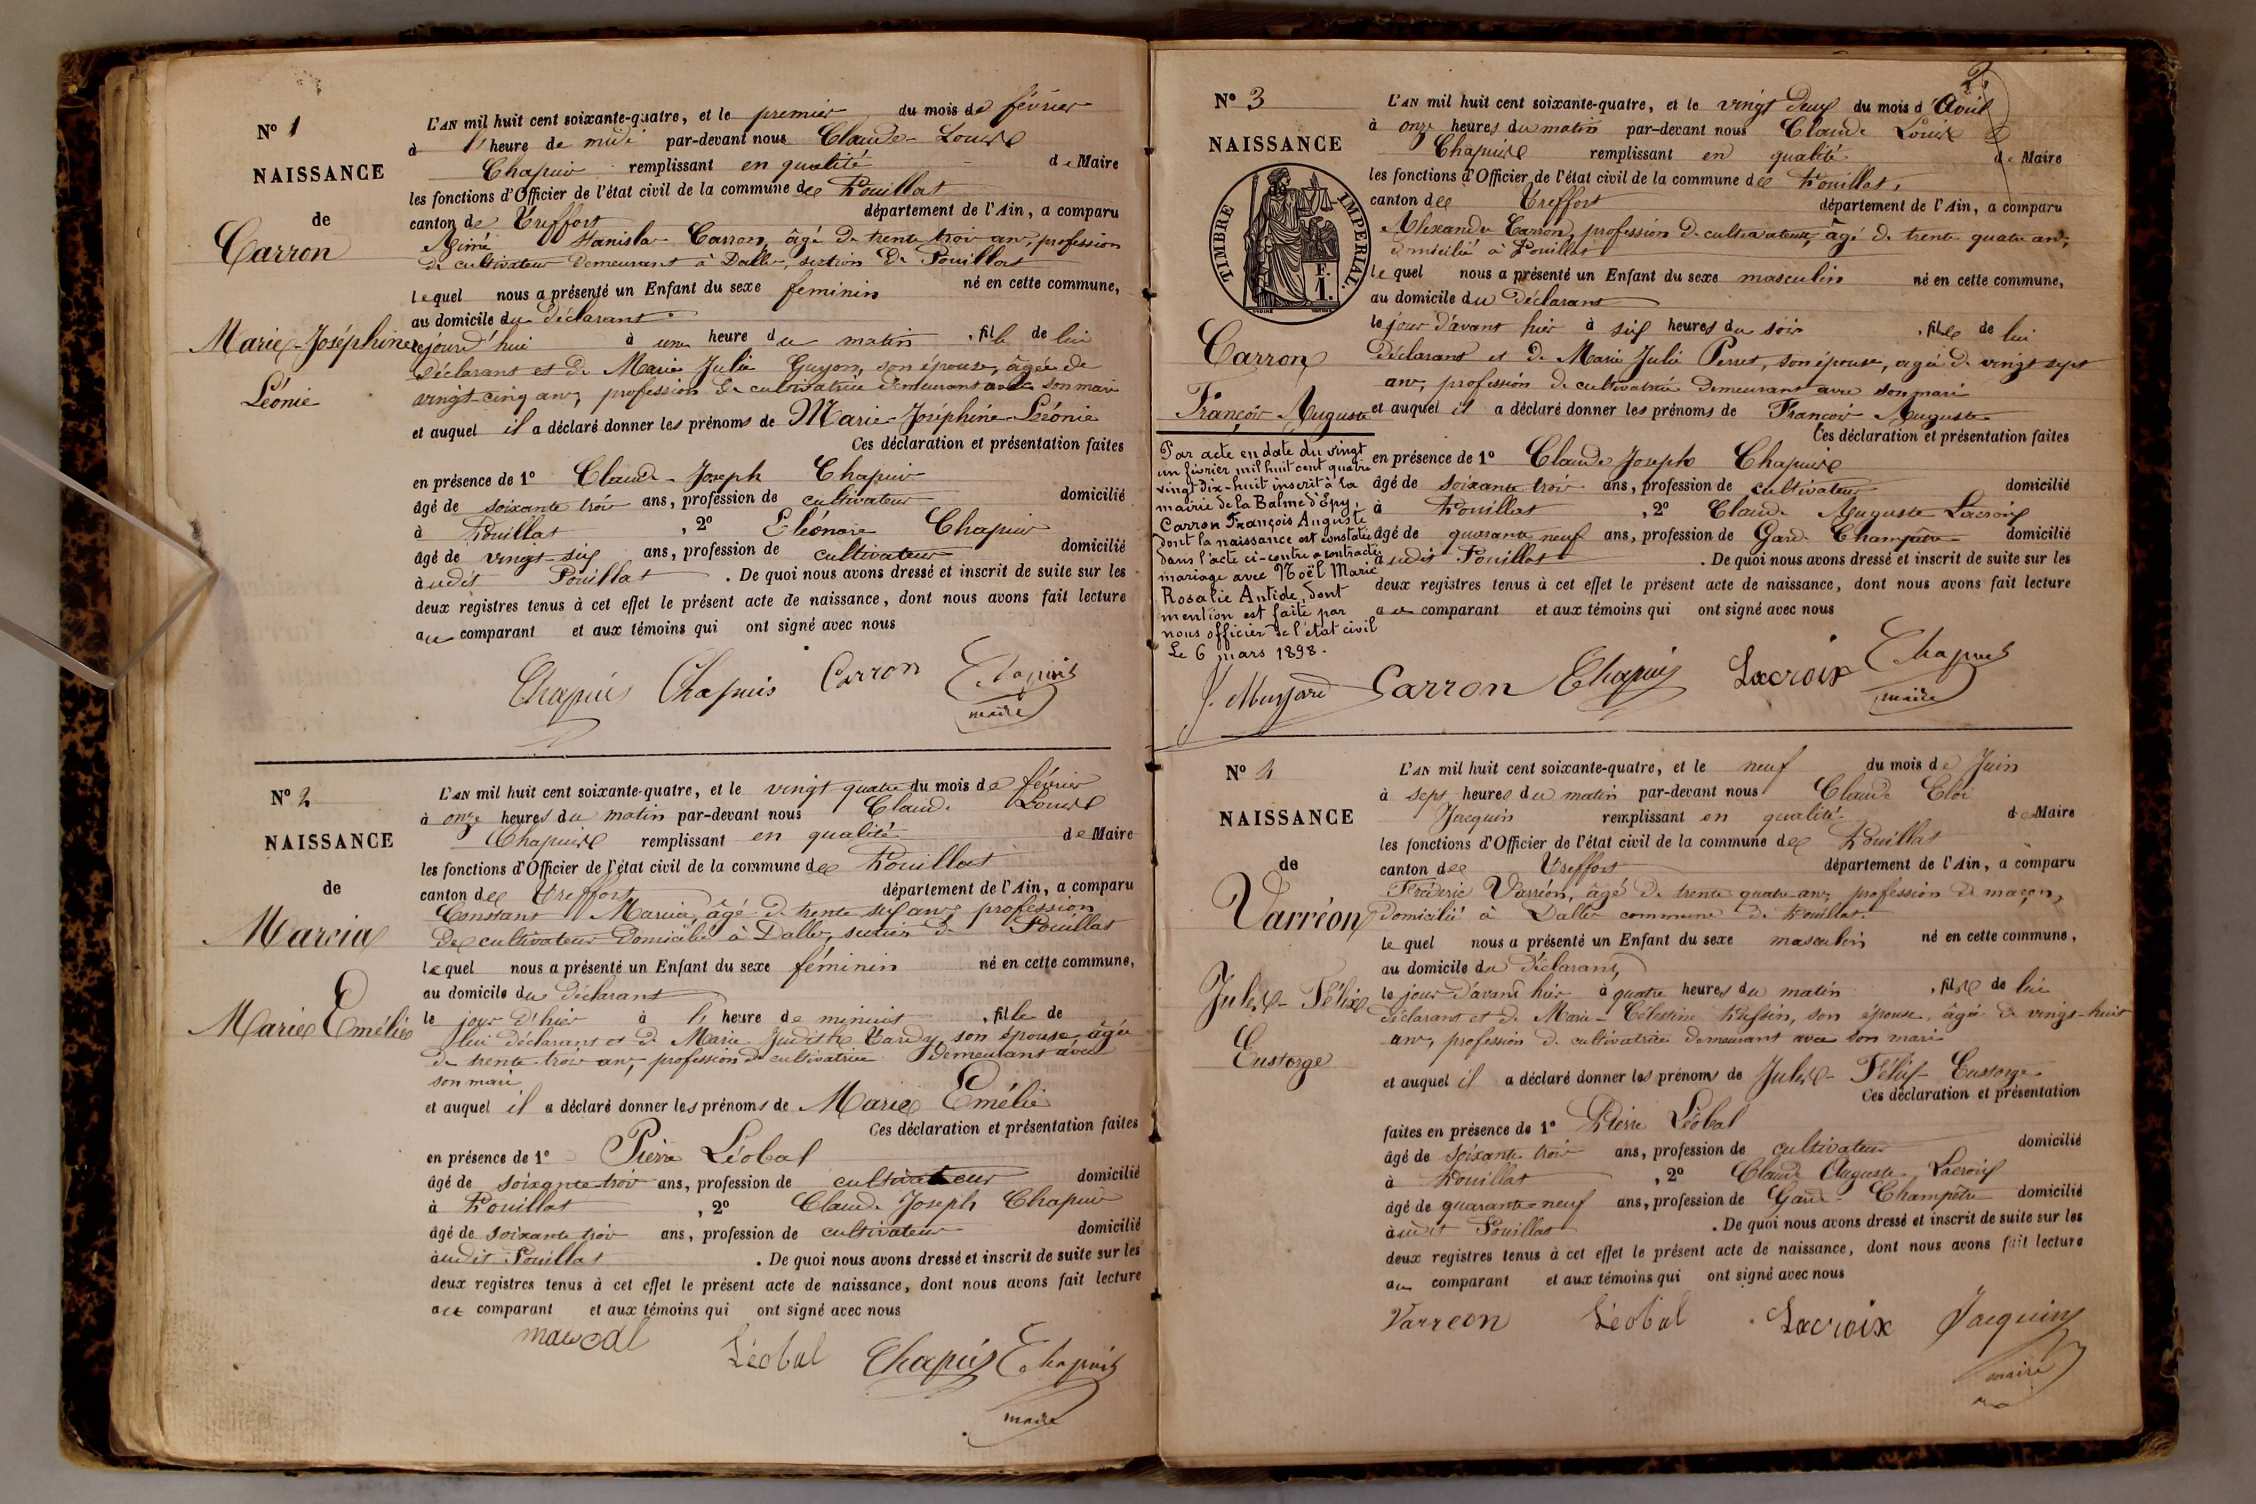 N° 1
NAISSANCE
de
Carron
Marie-Joséphine
Léonie
L'AN mil huit cent soixante-quatre, et le premier du mois de février
à heure de midi par-devant nous Claude Louis
Chapuis remplissant en qualité de Maire
les fonctions d'Officier de l'état civil de la commune de Pouillat
canton de Treffort département de l'Ain, a comparu
Aimé Stanislas Carron, âgé de trente trois ans, profession
de cultivateur demeurant à Dalles, section de Pouillat
lequel nous a présenté un Enfant du sexe féminin né en cette commune,
au domicile du déclarant
cejourd'hui à une heure du matin, fille de lui
déclarant et de Marie Julie Guyon, son épouse, âgée de
vingt-cinq ans, profession de cultivatrice demeurant avec son mari
et auquel il a déclaré donner les prénoms de Marie-Joséphine-Léonie
Ces déclaration et présentation faites
en présence de 1° Claude-Joseph Chapuis
âgé de soixante trois ans, profession de cultivateur domicilié
à Pouillat, 2° Eléonore Chapuis
âgé de vingt-six ans, profession de cultivateur domicilié
àudit Pouillat. De quoi nous avons dressé et inscrit de suite sur les
deux registres tenus à cet effet le présent acte de naissance, dont nous avons fait lecture
au comparant et aux témoins qui ont signé avec nous
Chapuis Chapuis Carron Chapuis
maire
N° 2
NAISSANCE
de
Marie Emélie
L'AN mil huit cent soixante-quatre, et le vingt quatre du mois de février
à onze heures du matin par-devant nous Claude Louis
Chapuis remplissant en qualité de Maire
les fonctions d'Officier de l'état civil de la commune de Pouillat
canton de Treffort département de l'Ain, a comparu
Constant âgé de trente six ans, profession
de cultivateur domicilié à Dalles, section de Pouillat
lequel nous a présenté un Enfant du sexe féminin né en cette commune,
au domicile du déclarant
le jour d'hier à heure de minuit, fille de
lui déclarant et de Marie Judith son épouse, âgée
de trente-trois ans, profession de cultivatrice demeurant avec
son mari
et auquel il a déclaré donner les prénoms de Marie Emélie
Ces déclaration et présentation faites
en présence de 1° Pierre Léobal
âgé de soixante-trois ans, profession de cultivateur domicilié
à Pouillat, 2° Claude Joseph Chapuis
âgé de soixante trois ans, profession de cultivateur domicilié
àudit Pouillat. De quoi nous avons dressé et inscrit de suite sur les
deux registres tenus à cet effet le présent acte de naissance, dont nous avons fait lecture
au comparant et aux témoins qui ont signé avec nous
Léobal Chapuis Chapuis
maire
N° 3
NAISSANCE
TIMBRE IMPERIAL.
F.
1.
Carron
François Auguste
Par acte en date du vingt
un février mil huit cent quatre
vingt dix-huit inscrit à la
mairie de la Balme d'Epy,
Carron François Auguste
dont la naissance est constatée
dans l'acte ci-contre a contracté
mariage avec Noël Marie
Rosalie Antide, dont
mention est faite par
nous officier de l'état civil
Le 6 mars 1898.
L'AN mil huit cent soixante-quatre, et le vingt deux du mois d'Avril
à onze heures du matin par-devant nous Claude Louis
Chapuis remplissant en qualité de Maire
les fonctions d'Officier de l'état civil de la commune de Pouillat,
canton de Treffort département de l'Ain, a comparu
Alexandre Carron, profession de cultivateur, âgé de trente quatre ans,
domicilié à Pouillat
lequel nous a présenté un Enfant du sexe masculin né en cette commune,
au domicile du déclarant
le jour d'avant hier à six heures du soir, fils de lui
déclarant et de Marie Julie Perret, son épouse, agée de vingt sept
ans, profession de cultivatrice demeurant avec son mari
et auquel il a déclaré donner les prénoms de François Auguste
Ces déclaration et présentation faites
en présence de 1° Claude Joseph Chapuis
âgé de soixante trois ans, profession de cultivateur domicilié
à Pouillat, 2° Claude Auguste Lacroix
âgé de quarante neuf ans, profession de Garde Champêtre domicilié
àudit Pouillat. De quoi nous avons dressé et inscrit de suite sur les
deux registres tenus à cet effet le présent acte de naissance, dont nous avons fait lecture
au comparant et aux témoins qui ont signé avec nous
Carron Chapuis Lacroix Chapuis
maire
N° 4
NAISSANCE
de
Varréon
Jules-Félix
Eustorge
L'AN mil huit cent soixante-quatre, et le neuf du mois de Juin
à sept heures du matin par-devant nous Claude Eloi
Jacquin remplissant en qualité de Maire
les fonctions d'Officier de l'état civil de la commune de Pouillat
canton de Treffort département de l'Ain, a comparu
Fréderic Varréon, âgé de trente quatre ans, profession de maçon,
domicilié à Dalles commune de Pouillat
lequel nous a présenté un Enfant du sexe masculin né en cette commune,
au domicile du déclarant,
le jour d'avant hier à quatre heures du matin, fils de lui
déclarant et de Marie-Célestine son épouse, âgée de vingt-huit
ans, profession de cultivatrice demeurant avec son mari
et auquel il a déclaré donner les prénoms de Jules-Félix Eustorge
Ces déclaration et présentation
faites en présence de 1° Pierre Léobal
âgé de soixante trois ans, profession de cultivateur domicilié
à Pouillat, 2° Claude Auguste Lacroix
âgé de quarante neuf ans, profession de Garde-Champêtre domicilié
àudit Pouillat. De quoi nous avons dressé et inscrit de suite sur les
deux registres tenus à cet effet le présent acte de naissance, dont nous avons fait lecture
au comparant et aux témoins qui ont signé avec nous
Varréon Léobal Lacroix Jacquin
maire